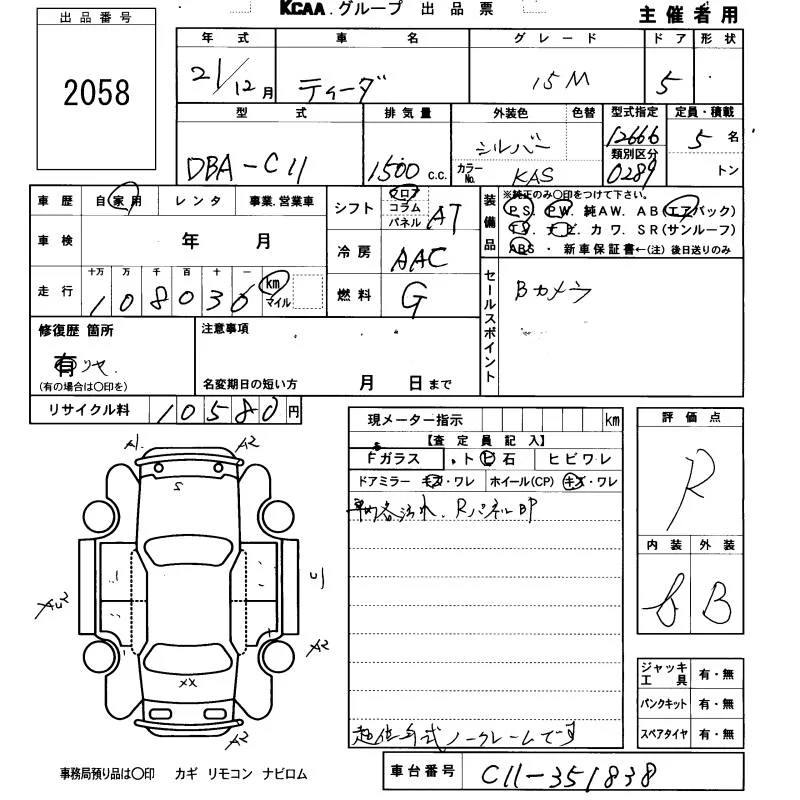 KCAA.グループ 出品票
主催者用
出品番号
2058
年式 車名 グレード ドア 形状
21/12月 ティーダ 15M 5
型式 排気量 外装色 色替 型式指定 定員・積載
DBA-C11 1500 c.c. シルバー 12666 5名
カラーNo. KAS 類別区分 0289 トン
車歴 自家用 レンタ 事業.営業車
車検 年 月
走行 十万 万 千 百 十 一
108036 km マイル
シフト フロア コラム パネル AT
冷房 AAC
燃料 G
装備品 ※純正のみ○印をつけて下さい。
PS. PW. 純AW. AB(エアバック)
TV. ナビ. カワ. SR(サンルーフ)
ABS・新車保証書←(注)後日送りのみ
セールスポイント
Bカメラ
修復歴 箇所
有
(有の場合は○印を)
注意事項
名変期日の短い方 月 日まで
リサイクル料 10580円
現メーター指示 km
【査定員記入】
Fガラス ト ビ 石 ヒビワレ
ドアミラー キズ・ワレ ホイール(CP) キズ・ワレ
車内各汚れ. Rパネル凹
評価点
R
内装 外装
B
A1 A2
S
A2
XX
A2
ジャッキ工具 有・無
パンクキット 有・無
スペアタイヤ 有・無
ノークレームです
事務局預り品は○印 カギ リモコン ナビロム
車台番号 C11-351838